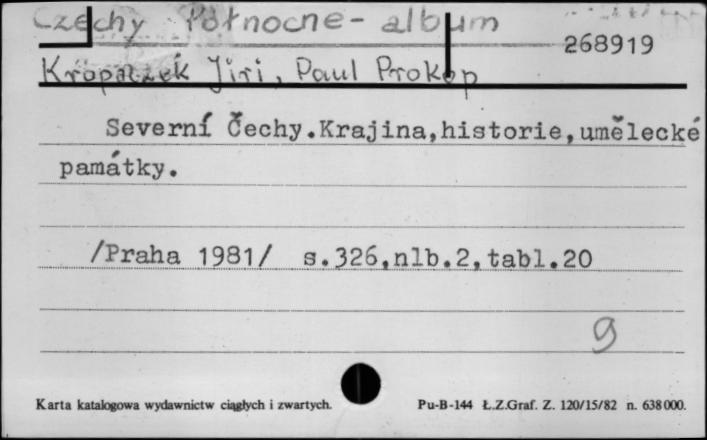 Czechy Północne- album
268919
Kropaczek Jiri, Paul Prokop
Severní Čechy.Krajina,historie,umělecké
památky.
/Praha 1981/ s.326,nlb.2,tabl.20
9
Karta katalogowa wydawnictw ciągłych i zwartych.
Pu-B-144 Ł.Z.Graf. Z. 120/15/82 n. 638000.